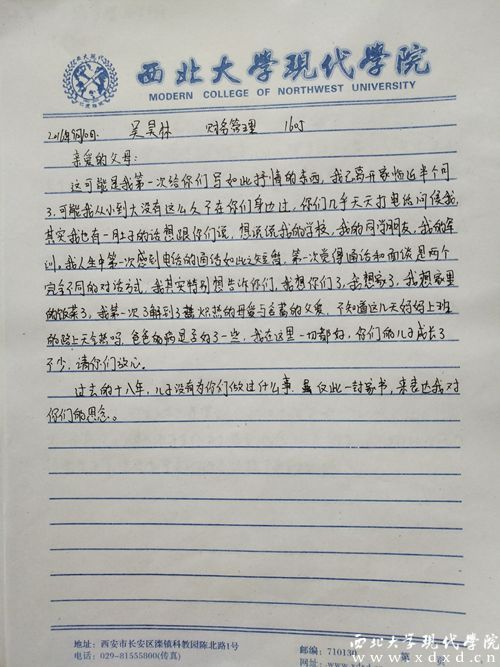 西北大学现代学院
MODERN COLLEGE OF NORTHWEST UNIVERSITY
吴昊林 财务管理 1605
亲爱的父母:
这可能是我第一次给你们写如此抒情的东西,我已离开家临近半个月
了,可能我从小到大没有这么久不在你们身边过,你们几乎天天打电话问候我,
其实我也有一肚子的话想跟你们说,想说说我的学校,我的同学朋友,我的军
训,我人生中第一次感到电话的通话如此之短暂,第一次觉得通话和面谈是两个
完全不同的对话方式,我其实特别想告诉你们,我想你们了,我想家了,我想家里
的饭菜了,我第一次了解到了炽热的母爱与含蓄的父爱,不知道这几天妈妈上班
的路上天冷吗,爸爸的病是否好了一些,我在这里一切都好,你们的儿子成长了
不少,请你们放心。
过去的十八年,儿子没有为你们做过什么事,虽仅此一封家书,来表达我对
你们的思念。
地址:西安市长安区滦镇科教园陈北路1号
电话:029-81555800(传真)
邮编:71013
网址:www.
西北大学现代学院
www.xdxd.cn